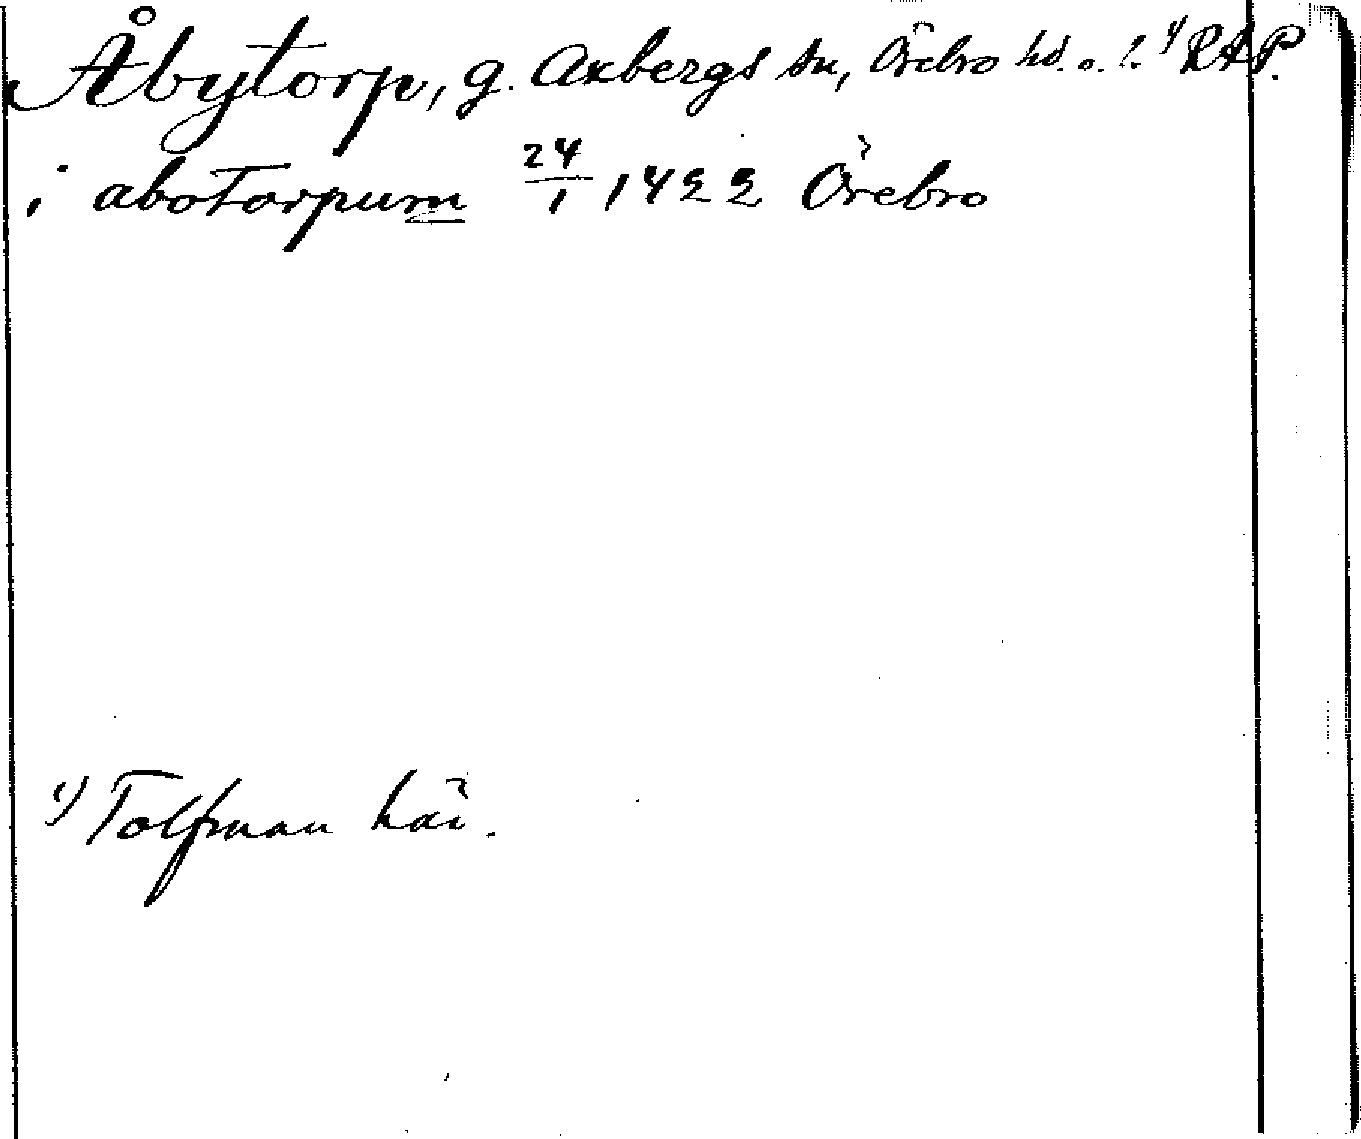 Åbytorp, g. Axbergs sn, Örebro hd. o. l. 1) RAP.
i abotorpum 24/1 1422 Örebro
1) Tolfman här.